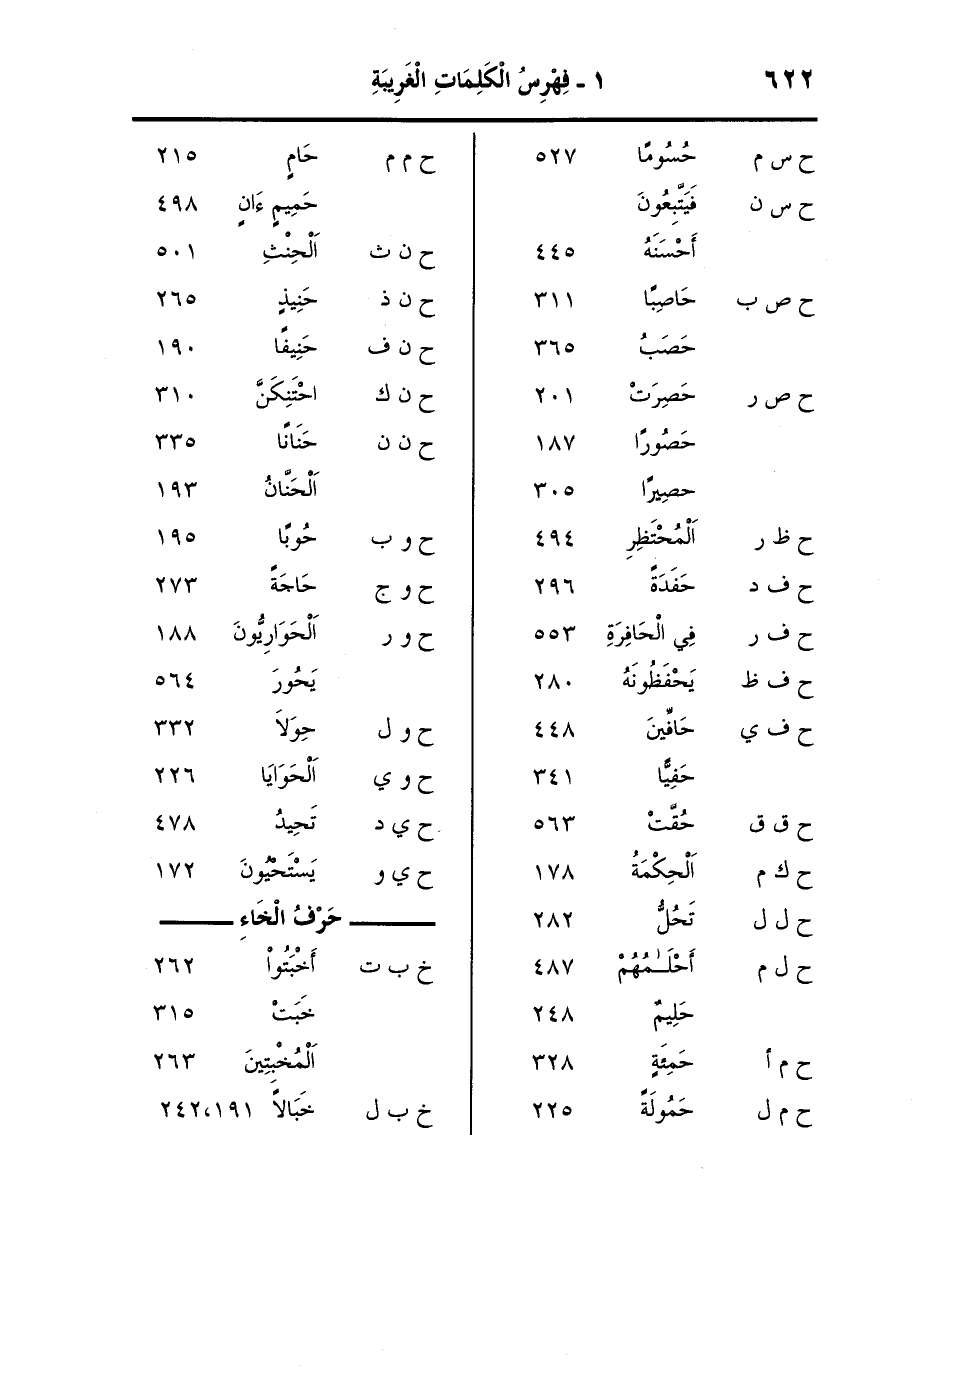 ٦٢٢
١ - فِهْرِسُ الْكَلِمَاتِ الْغَرِيبَةِ
ح س م حُسُومًا ٥٢٧
ح س ن فَيَتَّبِعُونَ
أَحْسَنَهُ ٤٤٥
ح ص ب حَاصِبًا ٣١١
حَصَبُ ٣٦٥
ح ص ر حَصِرَتْ ٢٠١
حَصُورًا ١٨٧
حصِيرًا ٣٠٥
ح ظ ر اَلْمُحْتَظِرِ ٤٩٤
ح ف د حَفَدَةً ٢٩٦
ح ف ر فِي الْحَافِرَةِ ٥٥٣
ح ف ظ يَحْفَظُونَهُ ٢٨٠
ح ف ي حَافِّينَ ٤٤٨
حَفِيًّا ٣٤١
ح ق ق حُقَّتْ ٥٦٣
ح ك م اَلْحِكْمَةُ ١٧٨
ح ل ل تَحُلُّ ٢٨٢
ح ل م أَحْلَـٰمُهُمْ ٤٨٧
حَلِيمٌ ٢٤٨
ح م أ حَمِئَةٍ ٣٢٨
ح م ل حَمُولَةً ٢٢٥
ح م م حَامٍ ٢١٥
حَمِيمٍ ءَانٍ ٤٩٨
ح ن ث اَلْحِنْثِ ٥٠١
ح ن ذ حَنِيذٍ ٢٦٥
ح ن ف حَنِيفًا ١٩٠
ح ن ك احْتَنِكَنَّ ٣١٠
ح ن ن حَنَانًا ٣٣٥
اَلْحَنَّانُ ١٩٣
ح و ب حُوبًا ١٩٥
ح و ج حَاجَةً ٢٧٣
ح و ر اَلْحَوَارِيُّونَ ١٨٨
يَحُورَ ٥٦٤
ح و ل حِوَلاً ٣٣٢
ح و ي اَلْحَوَايَا ٢٢٦
ح ي د تَحِيدُ ٤٧٨
ح ي و يَسْتَحْيُونَ ١٧٢
حَرْفُ الْخَاءِ
خ ب ت أَخْبَتُواْ ٢٦٢
خَبَتْ ٣١٥
اَلْمُخْبِتِينَ ٢٦٣
خ ب ل خَبَالاً ٢٤٢،١٩١